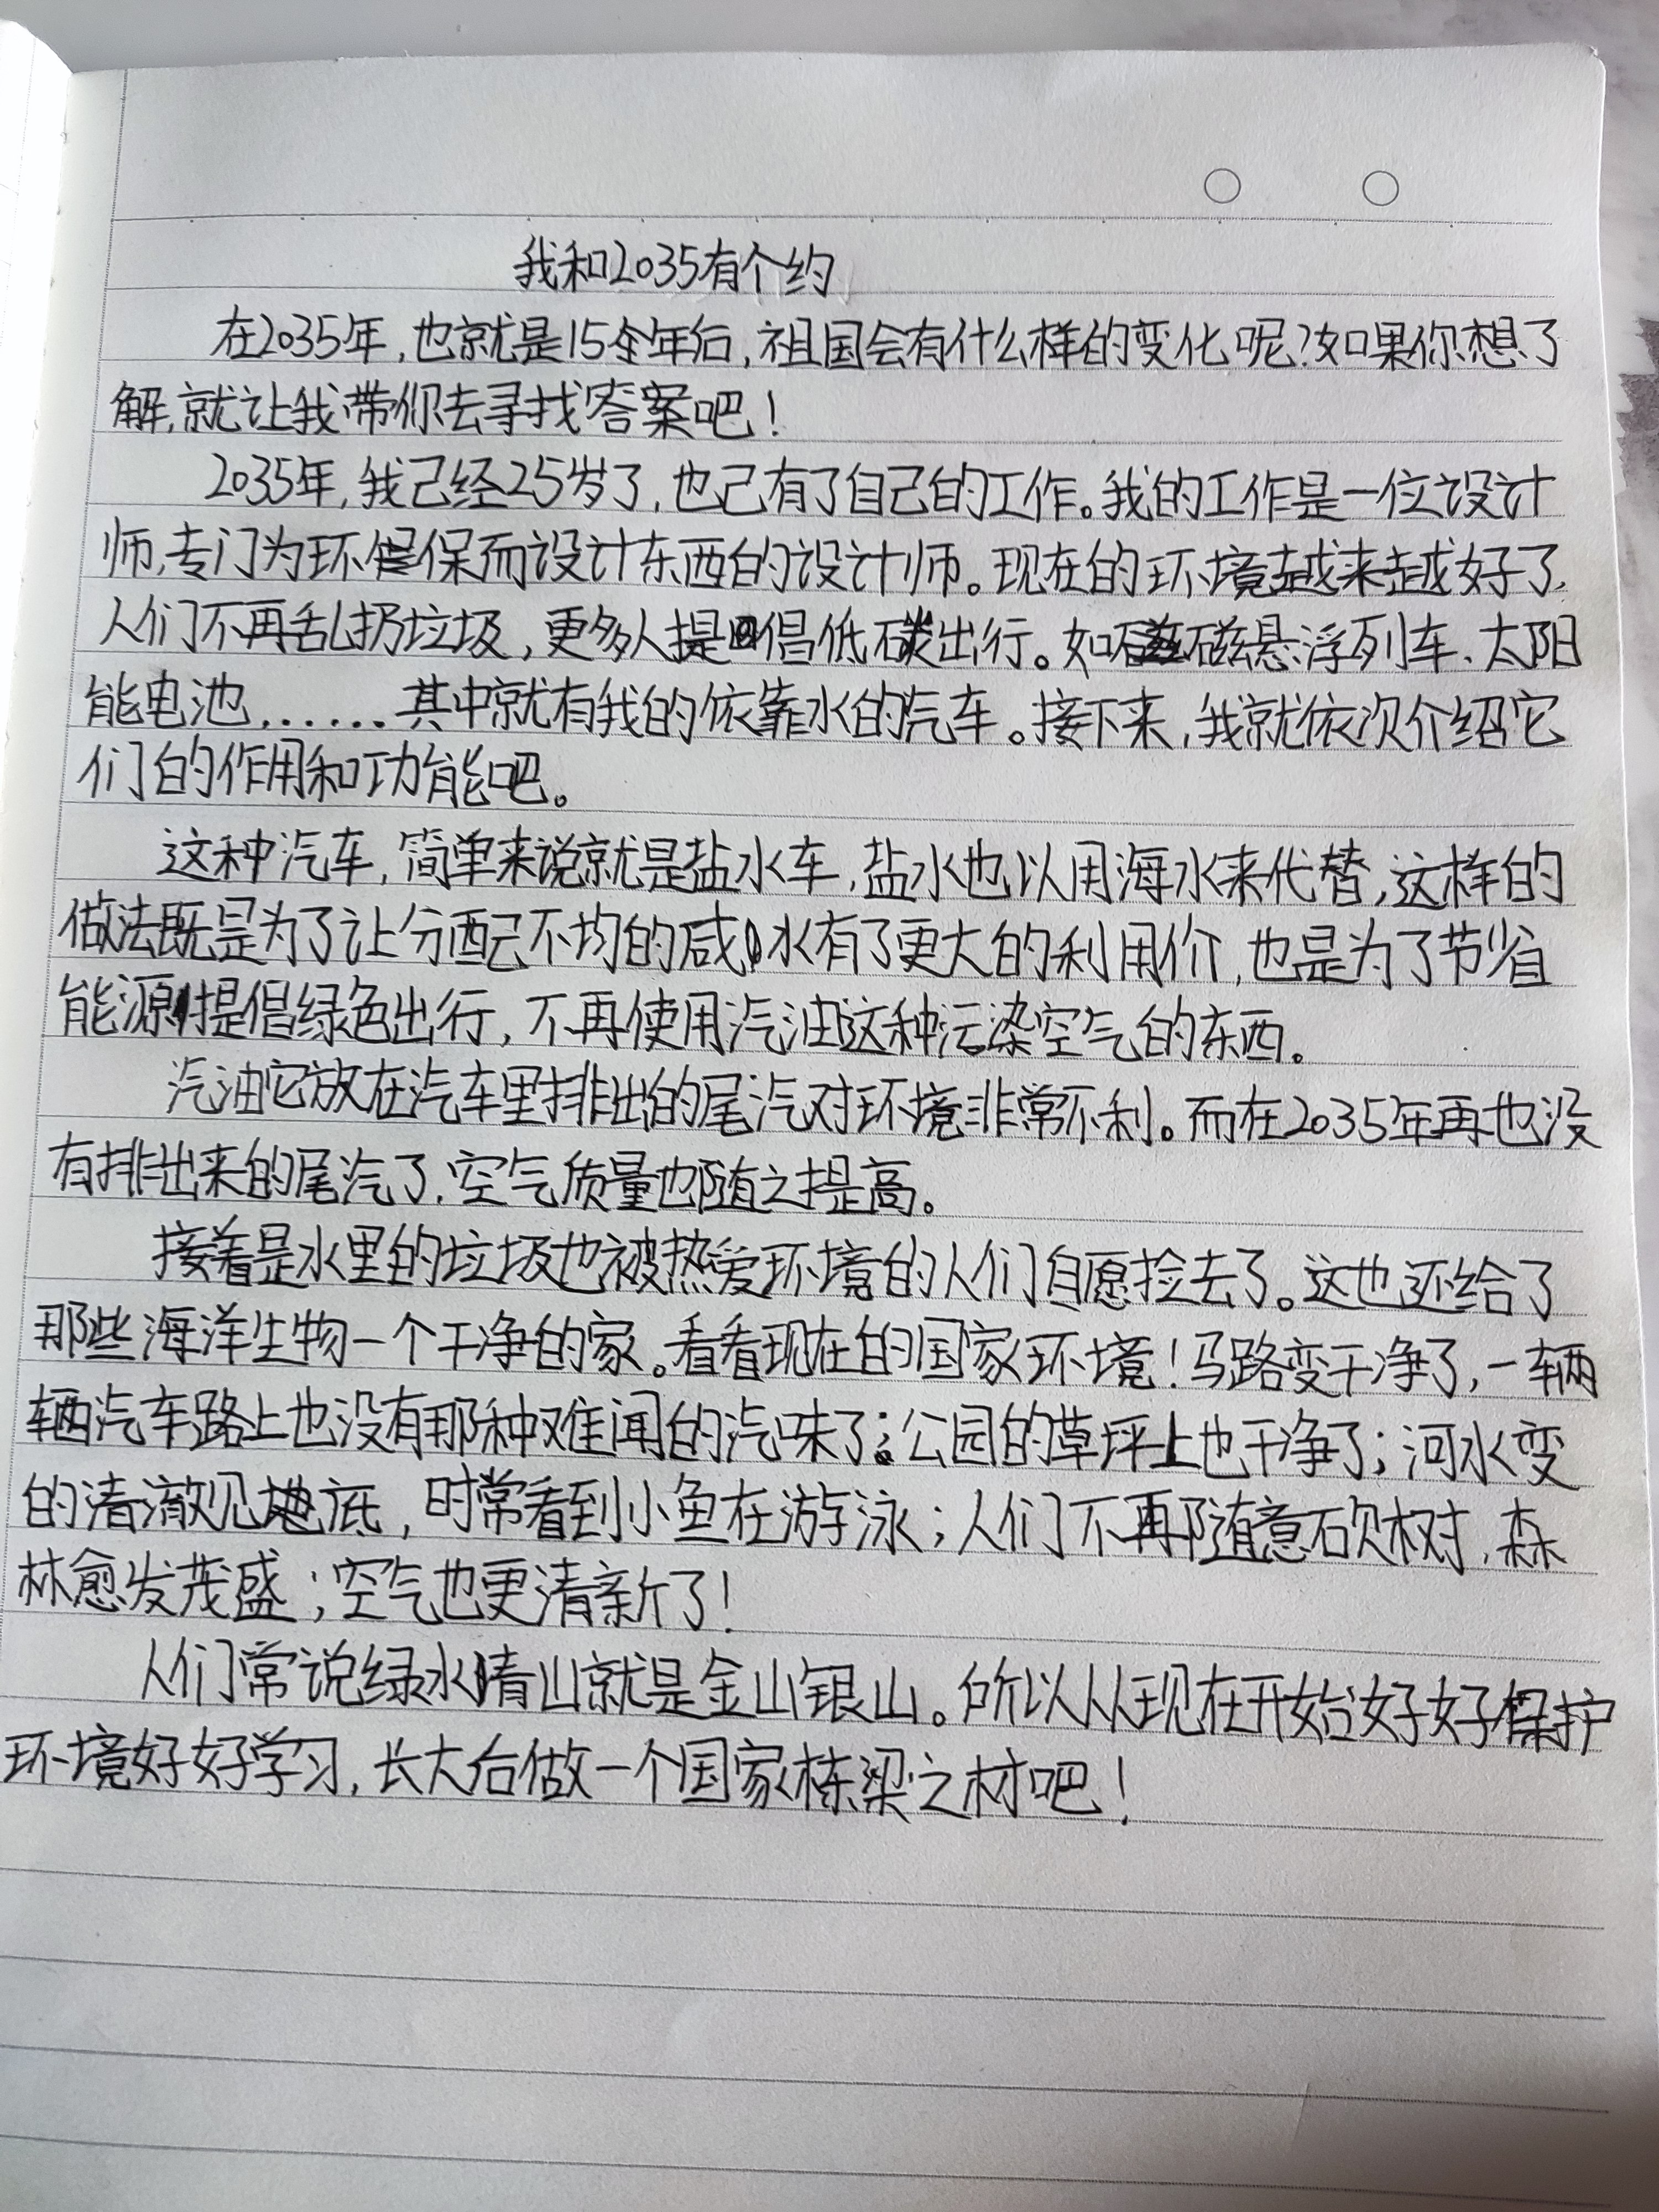 我和2035有个约
在2035年,也就是15年后,祖国会有什么样的变化呢?如果你想了
解,就让我带你去寻找答案吧!
2035年,我己经25岁了,也己有了自己的工作。我的工作是一位设计
师,专门为环保而设计东西的设计师。现在的环境越来越好了,
人们不再乱扔垃圾,更多人提倡低碳出行。如磁悬浮列车、太阳
能电池,......其中就有我的依靠水的汽车。接下来,我就依次介绍它
们的作用和功能吧。
这种汽车,简单来说就是盐水车,盐水也以用海水来代替,这样的
做法既是为了让分配不均的咸水有了更大的利用价,也是为了节省
能源提倡绿色出行,不再使用汽油这种污染空气的东西。
汽油它放在汽车里排出的尾汽对环境非常不利。而在2035年再也没
有排出来的尾汽了,空气质量也随之提高。
接着是水里的垃圾也被热爱环境的人们自愿捡去了。这也还给了
那些海洋生物一个干净的家。看看现在的国家环境!马路变干净了,一辆
辆汽车路上也没有那种难闻的汽味了;公园的草坪上也干净了;河水变
的清澈见底,时常看到小鱼在游泳;人们不再随意砍树,森
林愈发茂盛;空气也更清新了!
人们常说绿水青山就是金山银山。所以从现在开始好好保护
环境好好学习,长大后做一个国家栋梁之材吧!